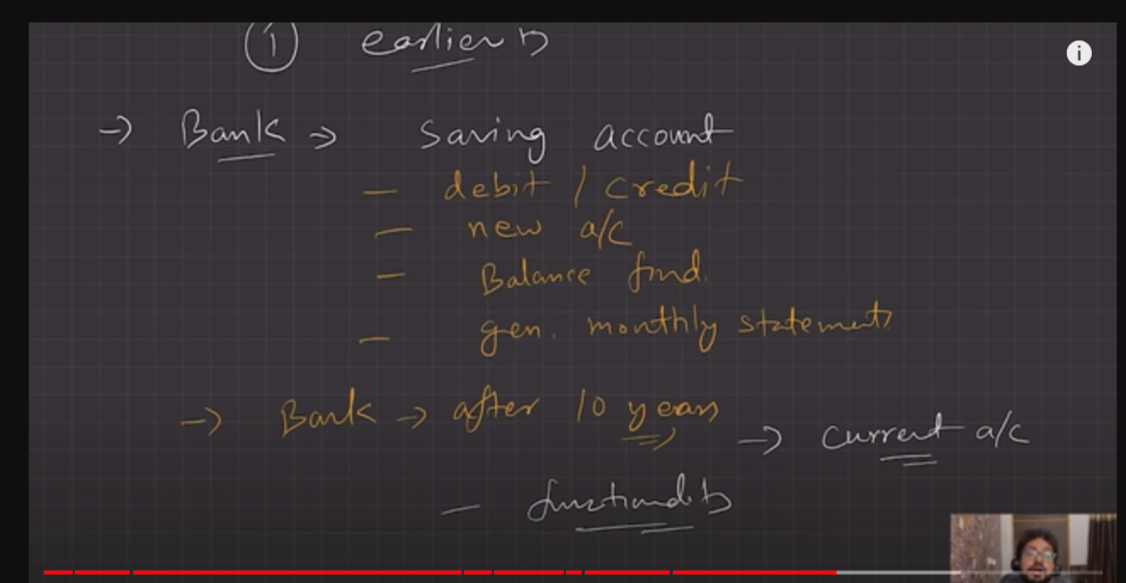 ① earlier
→ Bank → Saving account
— debit / credit
— new a/c
— Balance find.
— gen. monthly statements
→ Bank → after 10 years
→ current a/c
— functionality